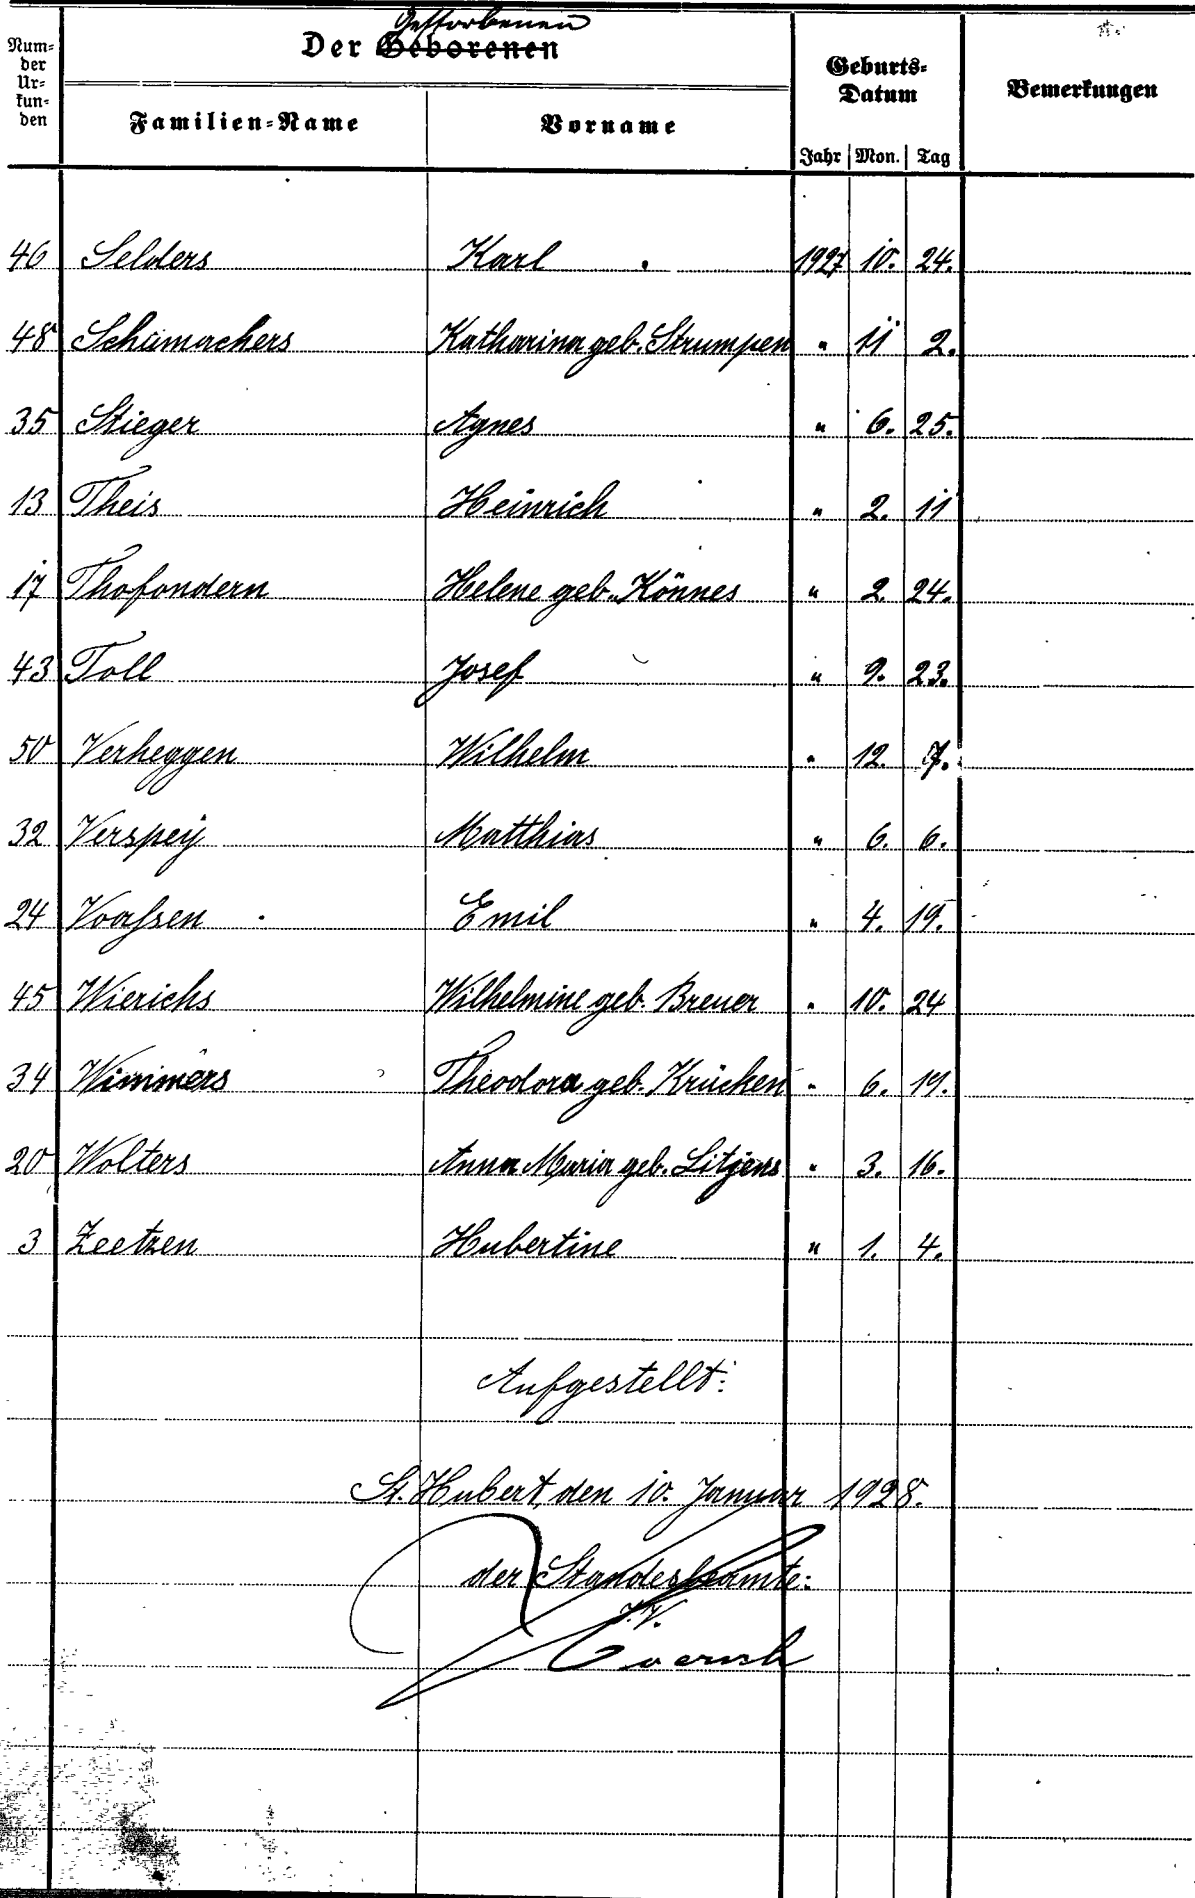 Num-
der
Ur-
kun-
den
Gestorbenen
Der Geborenen
Familien-Name
Vorname
Geburts-
Datum
Jahr Mon. Tag
Bemerkungen
46 Selders Karl 1927 10. 24.
48 Schümachers Katharina geb. Strumpen " 11 2.
35 Stieger Agnes " 6. 25.
13 Theis Heinrich " 2. 11
17 Thofondern Helene geb. Könnes " 2. 24.
43 Toll Josef " 9. 23.
50 Verheggen Wilhelm " 12. 7.
32 Verspeÿ Matthias " 6. 6.
24 Voaßsen Emil " 4. 19.
45 Wierichs Wilhelmine geb. Breuer " 10. 24
34 Wimmers Theodora geb. Krücken " 6. 19.
20 Wolters Anna Maria geb. Litjens " 3. 16.
3 Zeetzen Hubertine " 1. 4.
Aufgestellt:
St. Hubert, den 10. Januar 1928.
der Standesbeamte:
J.V.